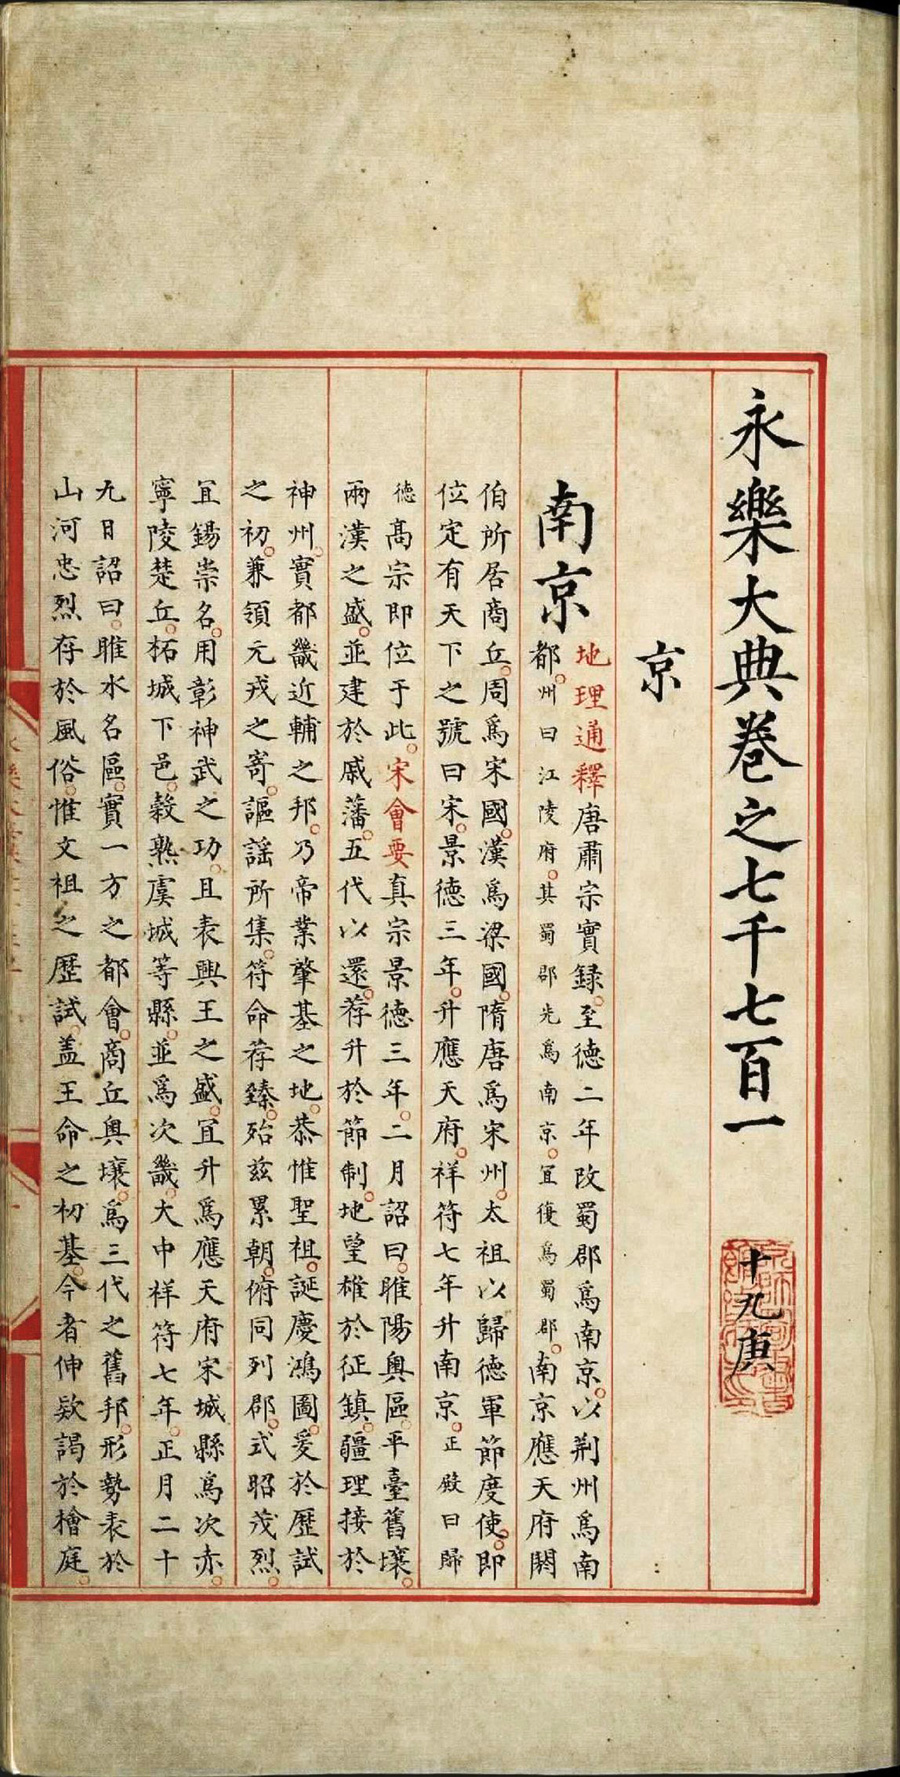 永樂大典卷之七千七百一 十九庚
京
南京
地理通釋唐肅宗實録至德二年改蜀郡爲南京以荆州爲南
都州曰江陵府其蜀郡先爲南京宜復爲蜀郡南京應天府閼
伯所居商丘周爲宋國漢爲梁國隋唐爲宋州太祖以歸德軍節度使即
位定有天下之號曰宋景德三年升應天府祥符七年升南京正殿曰歸
德高宗即位于此宋會要真宗景德三年二月詔曰睢陽奥區平臺舊壤
兩漢之盛並建於戚藩五代以還荐升於節制地望雄於征鎮疆理接於
神州實都畿近輔之邦乃帝業肇基之地恭惟聖祖誕慶鴻圖爰於歷試
之初兼領元戎之寄謳謡所集符命荐臻殆兹累朝俯同列郡式昭茂烈
宜錫崇名用彰神武之功且表興王之盛宜升爲應天府宋城縣爲次赤
寧陵楚丘柘城下邑穀熟虞城等縣並爲次畿大中祥符七年正月二十
九日詔曰睢水名區實一方之都會商丘奥壤爲三代之舊邦形勢表於
山河忠烈存於風俗惟文祖之歷試盖王命之初基今者伸款謁於檜庭